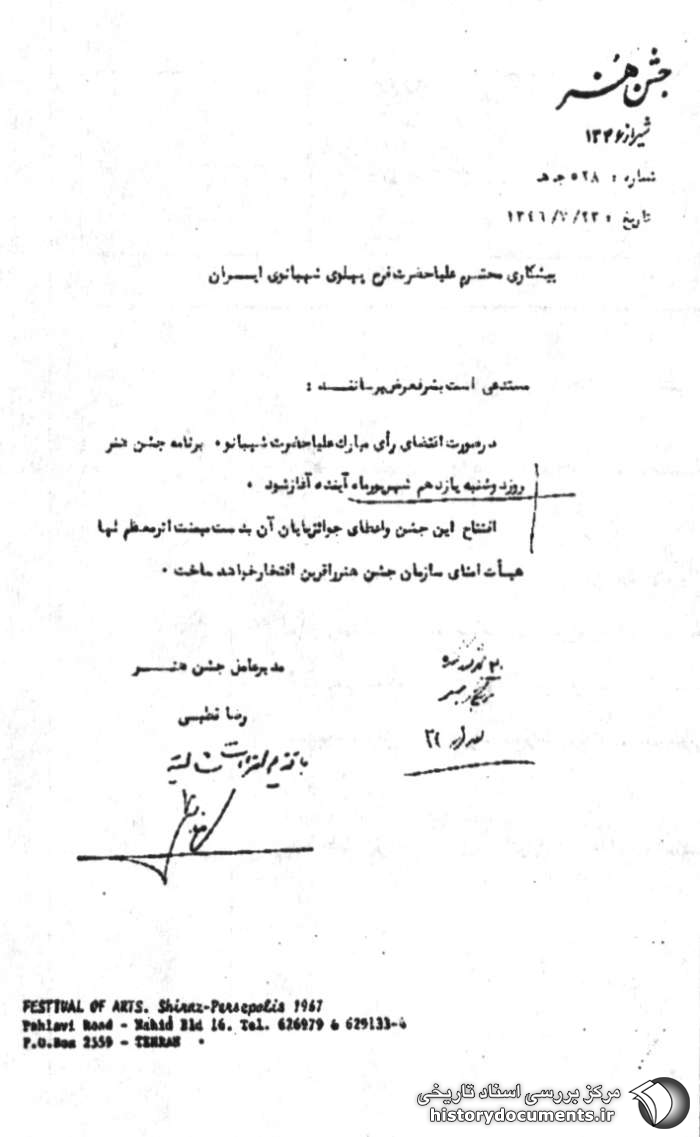 جشن هنر
شیراز ۱۳۴۶
شماره : ۵۲۸ ج هـ
تاریخ : ۱۳٤٦/۷/۲۳
پیشکاری محترم علیاحضرت فرح پهلوی شهبانوی ایــران
مستدعی است بشرفعرض برساننـــد :
درصورت اقتضای رأی مبارك علیاحضرت شهبانو ، برنامه جشن هنر
روز دوشنبه یازدهم شهریورماه آینده آغاز شود .
افتتاح این جشن واعطای جوائز پایان آن بدست میمنت اثر معظم لها
هیأت امنای سازمان جشن هنر را قرین افتخار خواهد ساخت .
مدیرعامل جشن هنــر
رضا قطبی
با تقدیم احترامات
FESTIVAL OF ARTS. Shiraz-Persepolis 1967
Pahlavi Road - Nahid Bld 16. Tel. 626979 & 629133-4
P.O.Box 2559 - TEHRAN
مرکز بررسی اسناد تاریخی
historydocuments.ir